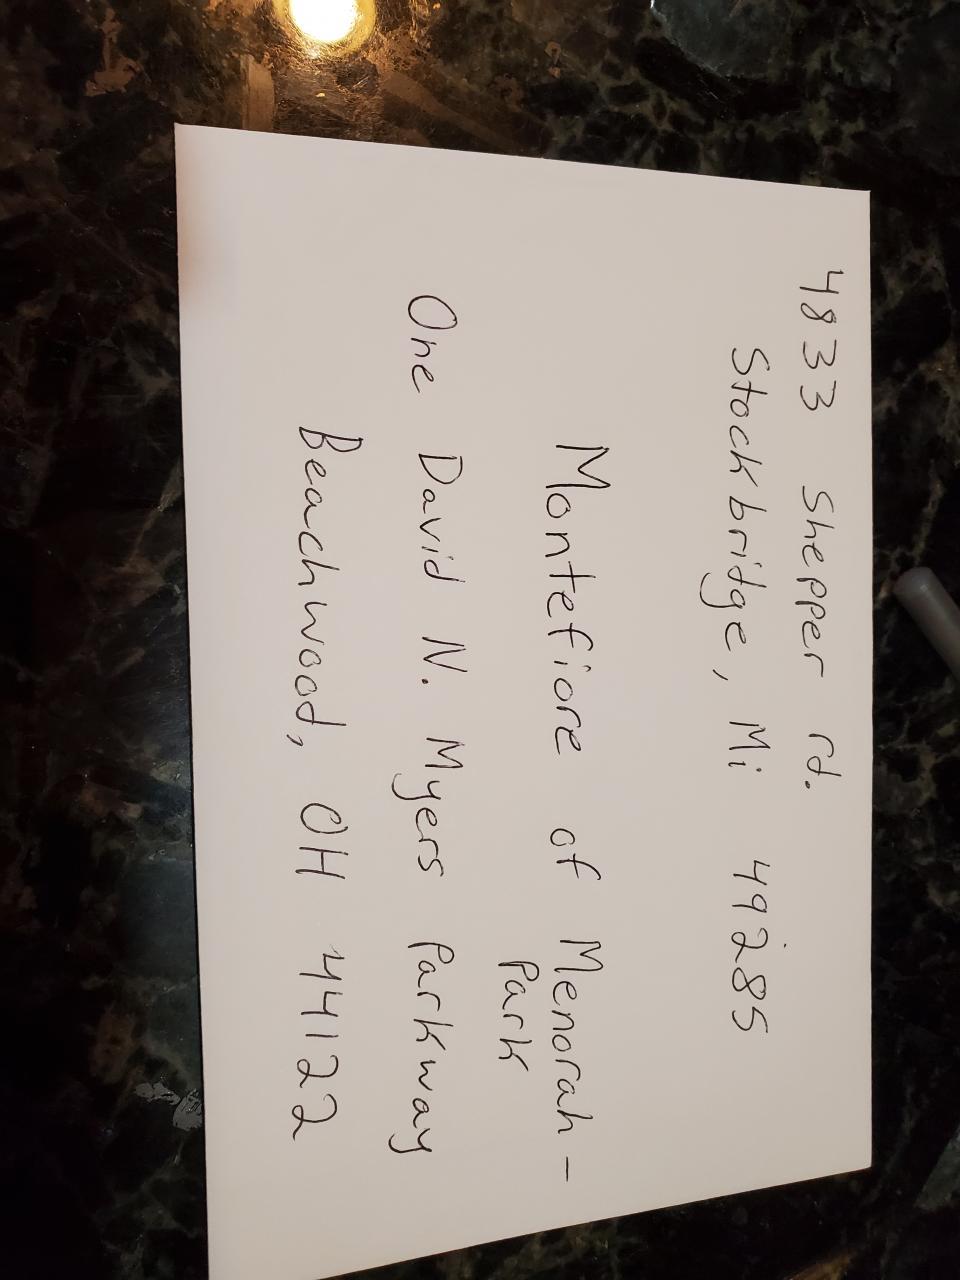 4833 Shepper rd.
Stockbridge, Mi 49285
Montefiore of Menorah -
Park
One David N. Myers Parkway
Beachwood, OH 44122